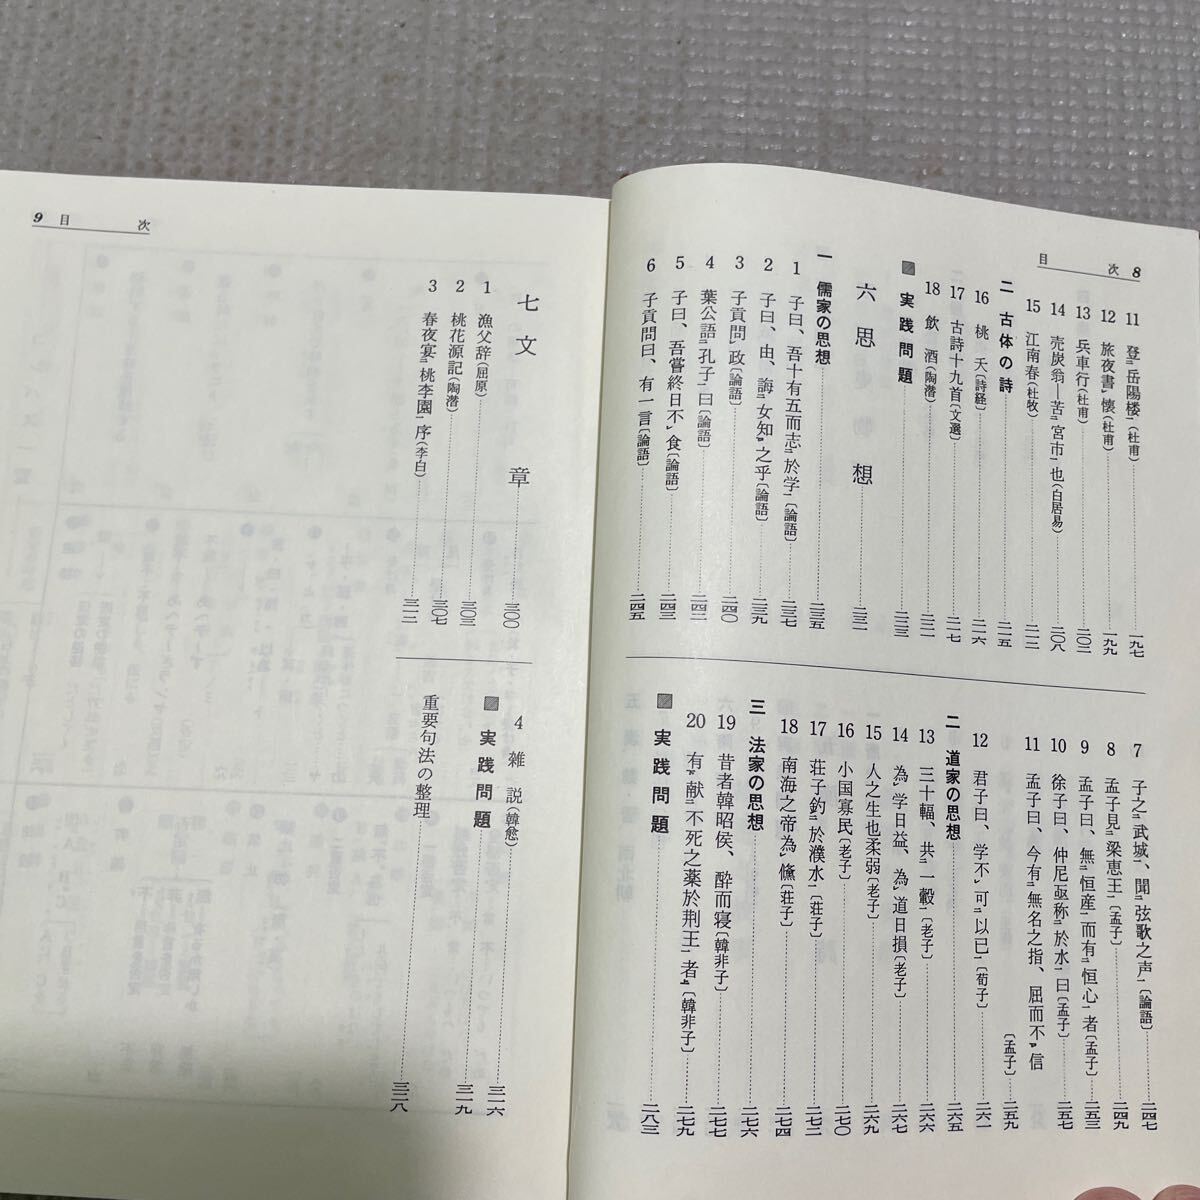 目 次 8
11 登㆓岳陽楼㆒(杜甫)……一九七
12 旅夜書㆑懐(杜甫)……一九九
13 兵車行(杜甫)……二〇二
14 売炭翁―苦㆓宮市㆒也(白居易)……二〇八
15 江南春(杜牧)……二一三
二 古体の詩……二一五
16 桃夭〔詩経〕……二一六
17 古詩十九首〔文選〕……二一七
18 飲酒(陶潜)……二二一
実践問題……二二三
六 思想……二三一
一 儒家の思想……二三五
1 子曰、吾十有五而志㆓於学㆒〔論語〕……二三七
2 子曰、由、誨㆓女知㆑之乎〔論語〕……二三九
3 子貢問㆑政〔論語〕……二四〇
4 葉公語㆓孔子㆒曰〔論語〕……二四二
5 子曰、吾嘗終日不㆑食〔論語〕……二四三
6 子貢問曰、有㆓一言〔論語〕……二四五
7 子之㆓武城㆒、聞㆓弦歌之声㆒〔論語〕……二四七
8 孟子見㆓梁恵王㆒〔孟子〕……二四九
9 孟子曰、無㆓恒産㆒而有㆓恒心㆒者〔孟子〕……二五三
10 徐子曰、仲尼亟称㆓於水㆒曰〔孟子〕……二五七
11 孟子曰、今有㆓無名之指、屈而不㆑信〔孟子〕……二五九
12 君子曰、学不㆑可㆓以已㆒〔荀子〕……二六一
二 道家の思想……二六五
13 三十輻、共㆓一轂㆒〔老子〕……二六六
14 為㆑学日益、為㆑道日損〔老子〕……二六七
15 人之生也柔弱〔老子〕……二六九
16 小国寡民〔老子〕……二七〇
17 荘子釣㆓於濮水㆒〔荘子〕……二七二
18 南海之帝為㆑儵〔荘子〕……二七四
三 法家の思想……二七六
19 昔者韓昭侯、酔而寝〔韓非子〕……二七七
20 有㆘献㆓不死之薬於荊王㆒者㆖〔韓非子〕……二七九
実践問題……二八三
9 目 次
七 文章……三〇〇
1 漁父辞(屈原)……三〇三
2 桃花源記(陶潜)……三〇七
3 春夜宴㆓桃李園㆒序(李白)……三一二
4 雑説(韓愈)……三一六
実践問題……三一九
重要句法の整理……三二八